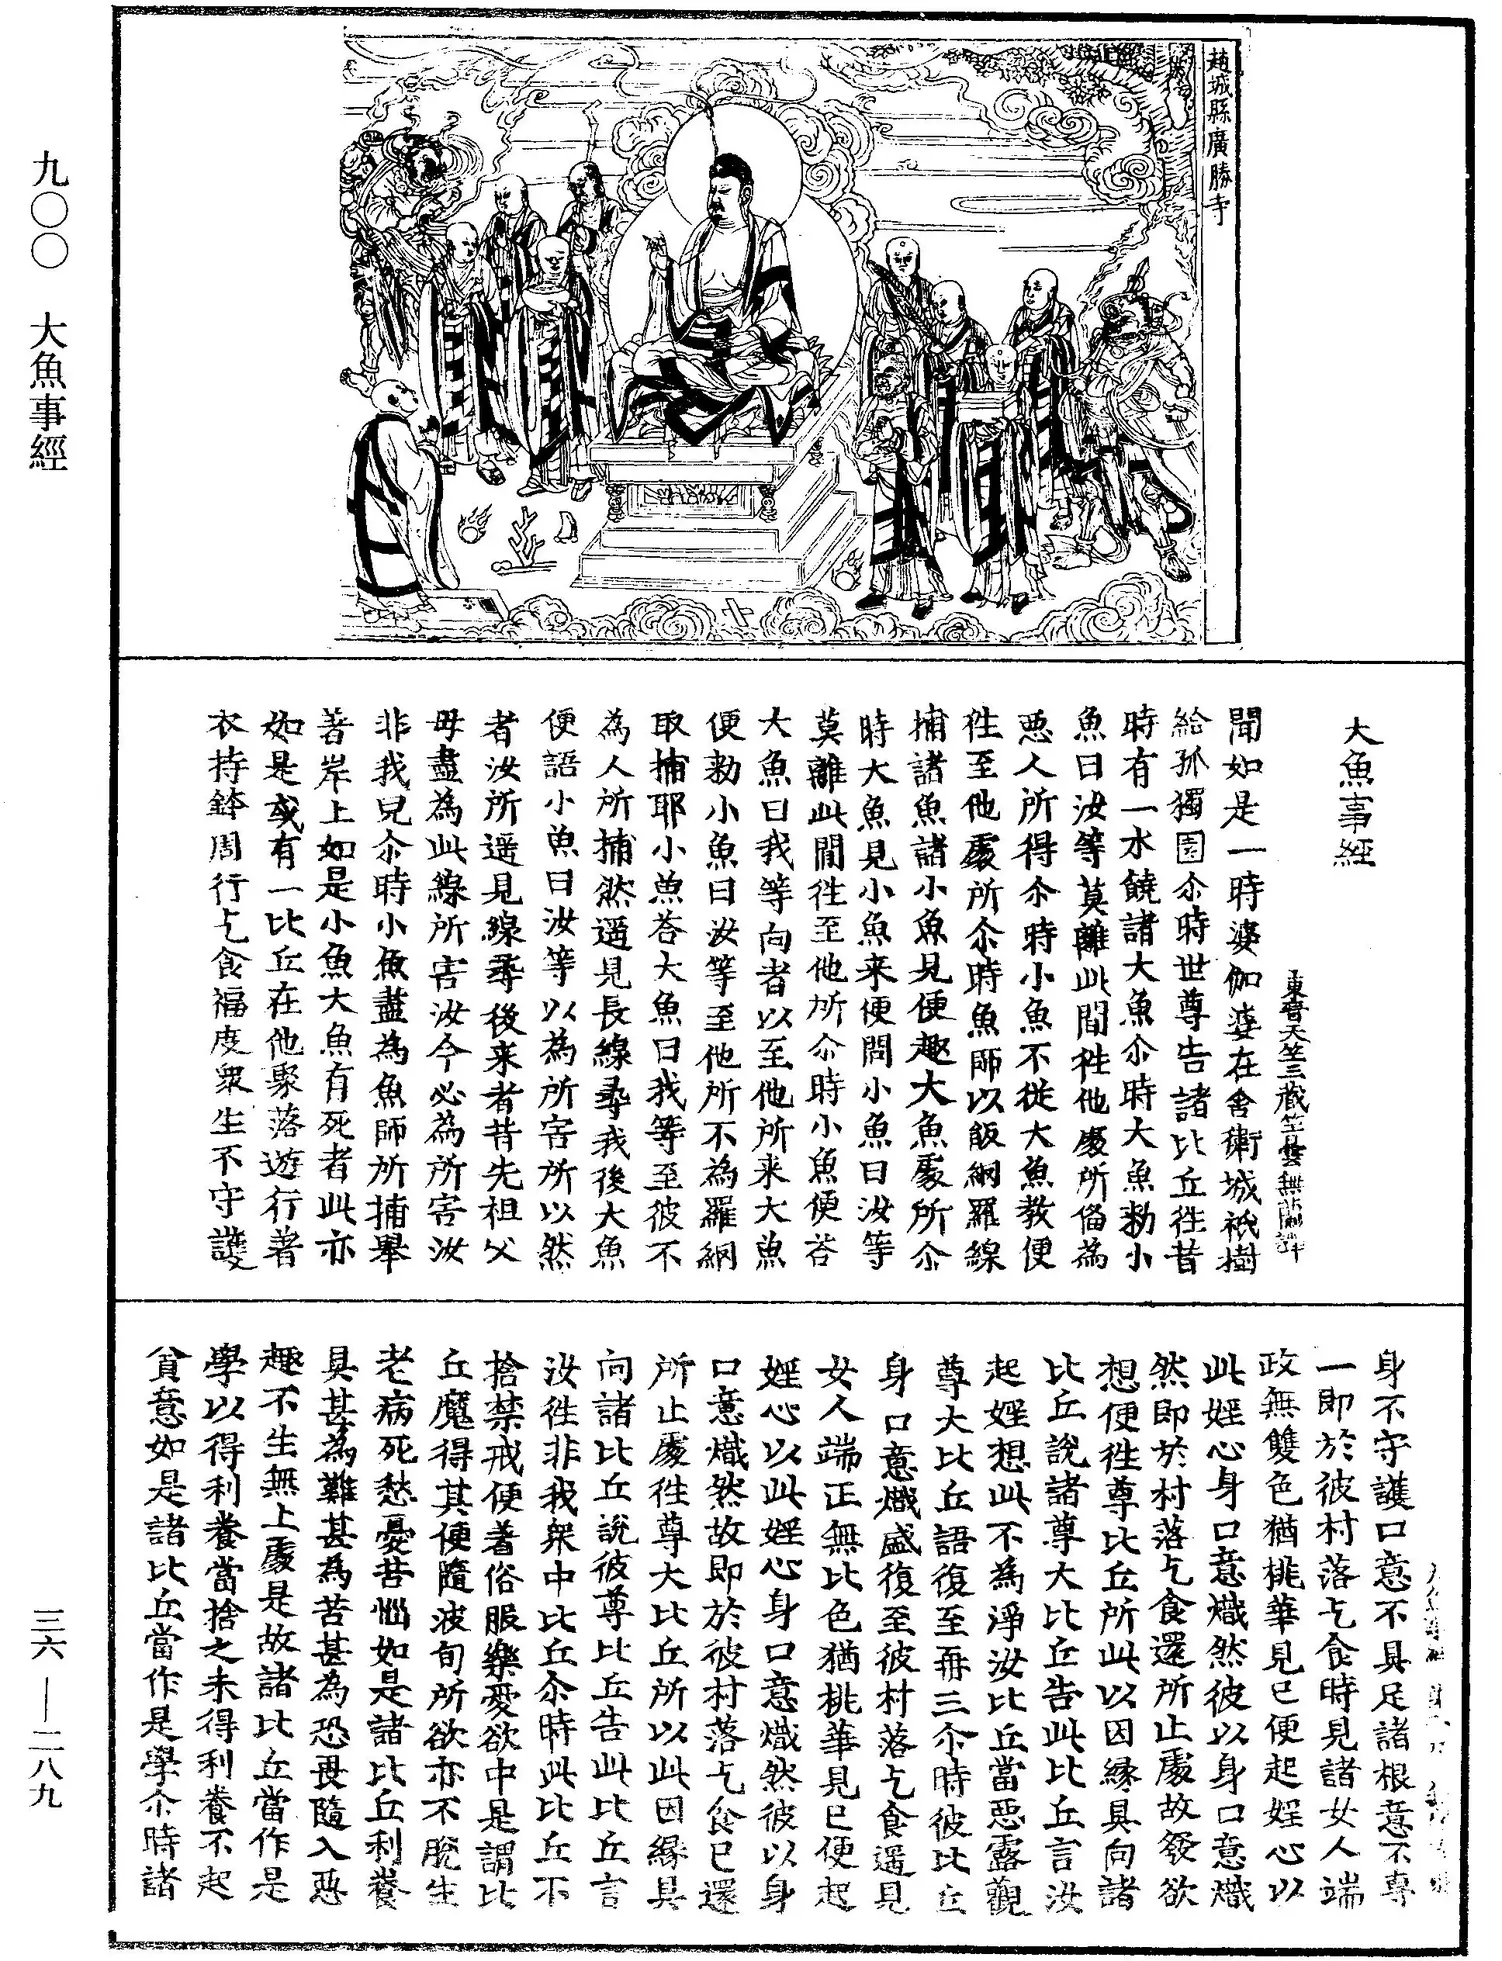 趙城縣廣勝寺
九〇〇　大魚事經
大魚事經
東晉天竺三藏竺曇無蘭譯
聞如是一時婆伽婆在舍衛城祇樹
給孤獨園尒時世尊告諸比丘徃昔
時有一水饒諸大魚尒時大魚勑小
魚曰汝等莫離此間徃他處所俻為
悪人所得尒時小魚不從大魚教便
徃至他處所尒時魚師以飯網羅線
捕諸魚諸小魚見便趣大魚處所尒
時大魚見小魚来便問小魚曰汝等
莫離此間徃至他所尒時小魚便荅
大魚曰我等向者以至他所来大魚
便勑小魚曰汝等至他所不為羅網
取捕耶小魚荅大魚曰我等至彼不
為人所捕然遥見長線尋我後大魚
便語小魚曰汝等以為所害所以然
者汝所遥見線尋後来者昔先祖父
母盡為此線所害汝今必為所害汝
非我兒尒時小魚盡為魚師所捕舉
著岸上如是小魚大魚有死者此亦
如是或有一比丘在他聚落遊行著
衣持鉢周行乞食福度衆生不守護
身不守護口意不具足諸根意不專
一即於彼村落乞食時見諸女人端
政無雙色猶桃華見已便起婬心以
此婬心身口意熾然彼以身口意熾
然即於村落乞食還所止處故發欲
想便徃尊比丘所此以因縁具向諸
比丘說諸尊大比丘告此比丘言汝
起婬想此不為淨汝比丘當惡露觀
尊大比丘語復至再三尒時彼比丘
身口意熾盛復至彼村落乞食遥見
女人端正無比色猶桃華見已便起
婬心以此婬心身口意熾然彼以身
口意熾然故即於彼村落乞食已還
所止處徃尊大比丘所以此因縁具
向諸比丘說彼尊比丘告此比丘言
汝徃非我衆中比丘尒時此比丘不
捨禁戒便著俗服樂愛欲中是謂比
丘魔得其便隨波旬所欲亦不脫生
老病死愁憂苦惱如是諸比丘利養
具甚為難甚為苦甚為恐畏隨入惡
趣不生無上處是故諸比丘當作是
學以得利養當捨之未得利養不起
貪意如是諸比丘當作是學尒時諸
三六—二八九